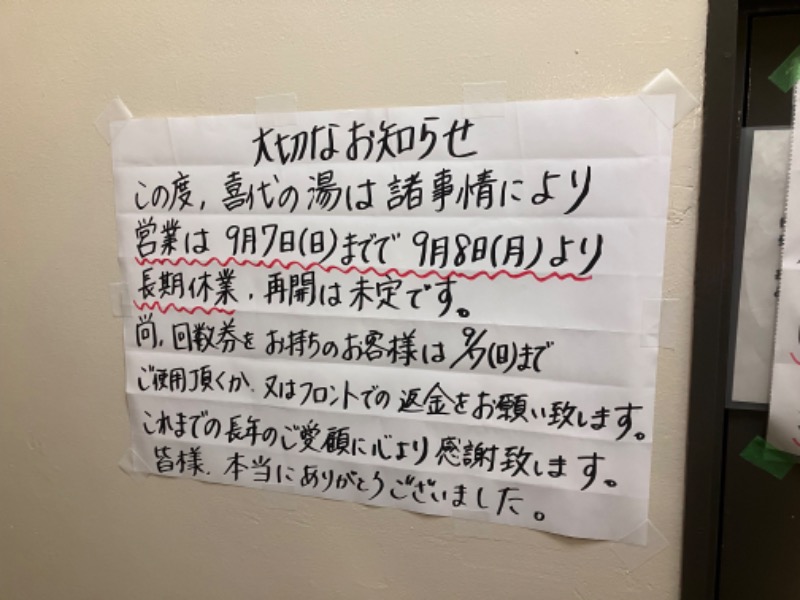 大切なお知らせ
この度、喜代の湯は諸事情により
営業は9月7日(日)までで9月8日(月)より
長期休業、再開は未定です。
尚、回数券をお持ちのお客様は9/7(日)まで
ご使用頂くか、又はフロントでの返金をお願い致します。
これまでの長年のご愛顧に心より感謝致します。
皆様、本当にありがとうございました。